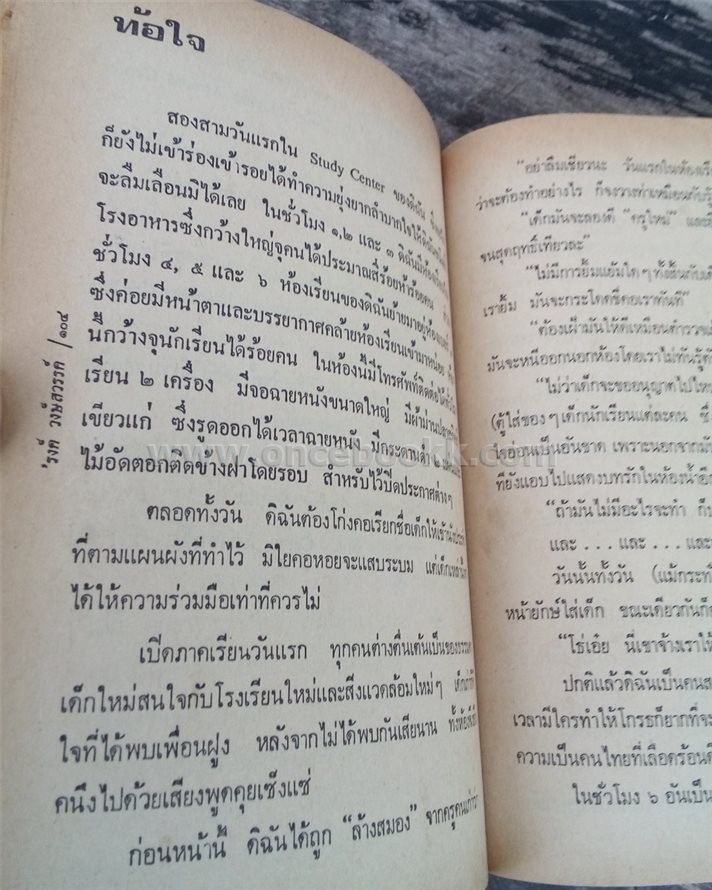 ท้อใจ
สองสามวันแรกใน Study Center ของดิฉัน
ก็ยังไม่เข้าร่องเข้ารอยได้ทำความยุ่งยากลำบากใจให้
จะลืมเลือนมิได้เลย ในชั่วโมง ๑,๒ และ ๓ ดิฉันมีห้อง
โรงอาหารซึ่งกว้างใหญ่จุคนได้ประมาณสี่ร้อยห้าร้อยคน
ชั่วโมง ๔, ๕ และ ๖ ห้องเรียนของดิฉันย้ายมาอยู่ห้อง
ซึ่งค่อยมีหน้าตาและบรรยากาศคล้ายห้องเรียนเข้ามาหน่อย
นี้กว้างจุนักเรียนได้ร้อยคน ในห้องนี้มีโทรศัพท์ติดต่อได้
เรียน ๒ เครื่อง มีจอฉายหนังขนาดใหญ่ มีผ้าม่าน
เขียวแก่ ซึ่งรูดออกได้เวลาฉายหนัง มีกระดานดำ
ไม้อัดตอกติดข้างฝาโดยรอบ สำหรับไว้ปิดประกาศต่างๆ
ตลอดทั้งวัน ดิฉันต้องโก่งคอเรียกชื่อเด็กให้เข้านั่ง
ที่ตามแผนผังที่ทำไว้ มิไยคอหอยจะแสบระบม แต่เด็ก
ได้ให้ความร่วมมือเท่าที่ควรไม่
เปิดภาคเรียนวันแรก ทุกคนต่างตื่นเต้นเป็นของธรรมดา
เด็กใหม่สนใจกับโรงเรียนใหม่และสิ่งแวดล้อมใหม่ๆ
ใจที่ได้พบเพื่อนฝูง หลังจากไม่ได้พบกันเสียนาน
คนึงไปด้วยเสียงพูดคุยเซ็งแซ่
ก่อนหน้านี้ ดิฉันได้ถูก “ล้างสมอง” จากครูคนเก่า
'รงค์ วงษ์สวรรค์ /๑๐๔
“อย่าลืมเชียวนะ วันแรกในห้องเรียน
ว่าจะต้องทำอย่างไร ก็จงวางท่าเหมือนกับรู้
“เด็กมันจะลองดี “ครูใหม่” และ
จนสุดฤทธิ์เทียวละ”
“ไม่มีการยิ้มแย้มใดๆทั้งสิ้นกับเด็ก
เรายิ้ม มันจะกระโดดรัดคอเราทันที”
“ต้องเฝ้ามันให้ดีเหมือนตำรวจ
มันจะหนีออกนอกห้องโดยเราไม่ทันรู้ตัว
“ไม่ว่าเด็กจะขออนุญาตไปไหน
(ตู้ใส่ของๆเด็กนักเรียนแต่ละคน ซึ่ง
ใดออนเป็นอันขาด เพราะนอกจากมัน
ที่ยังแอบไปแสดงบทรักในห้องน้ำอีก
“ถ้ามันไม่มีอะไรจะทำ ก็
และ . . . และ . . . และ
วันนั้นทั้งวัน (แม้กระทั่ง
หน้ายักษ์ใส่เด็ก ขณะเดียวกันก็
“โธ่เอ๋ย นี่เขาจ้างเราให้
ปกติแล้วดิฉันเป็นคน
เวลามีใครทำให้โกรธก็ยากที่จะ
ความเป็นคนไทยที่เลือดร้อน
ในชั่วโมง ๖ อันเป็น
www.oncebookk.com